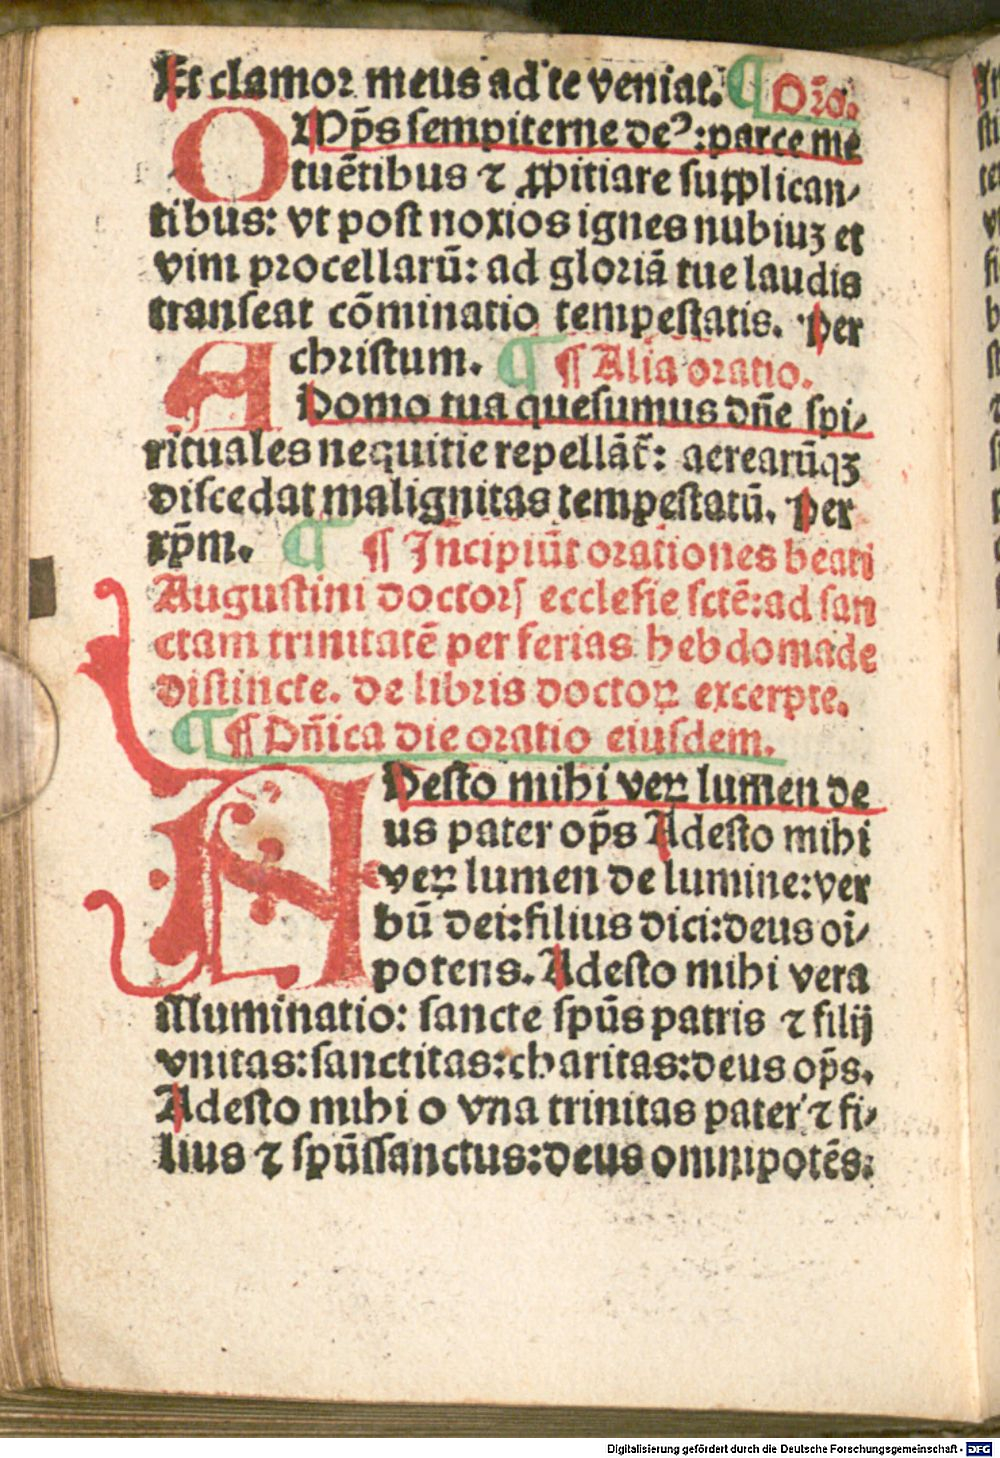 Et clamor meus ad te veniat. ¶ Orō.
OMp̄s sempiterne deꝰ: parce me
tuētibus ⁊ ꝓpitiare suꝓplican⸗
tibus: vt post noxios ignes nubiuꝫ et
vim procellarū: ad gloriā tue laudis
transeat cōminatio tempestatis. Per
christum. ¶ ¶ Alia oratio.
A Domo tua quesumus dn̄e spi⸗
rituales nequitie repellāt᷑: aerearūqꝫ
discedat malignitas tempestatū. Per
xp̄m. ¶ ¶ Incipiūt orationes beati
Augustini doctorꝭ ecclesie sctē: ad san
ctam trinitatē per ferias hebdomade
distincte. de libris doctoꝝ excerpte.
¶ ¶ Dn̄ica die oratio eiusdem.
ADesto mihi veꝝ lumen de
us pater op̄s Adesto mihi
veꝝ lumen de lumine: ver
bū dei: filius dici: deus oī⸗
potens. Adesto mihi vera
illuminatio: sancte spūs patris ⁊ filij
vnitas: sanctitas: charitas: deus op̄s.
Adesto mihi o vna trinitas pater ⁊ fi⸗
lius ⁊ spūssanctus: deus omnipotēs:
Digitalisierung gefördert durch die Deutsche Forschungsgemeinschaft - DFG